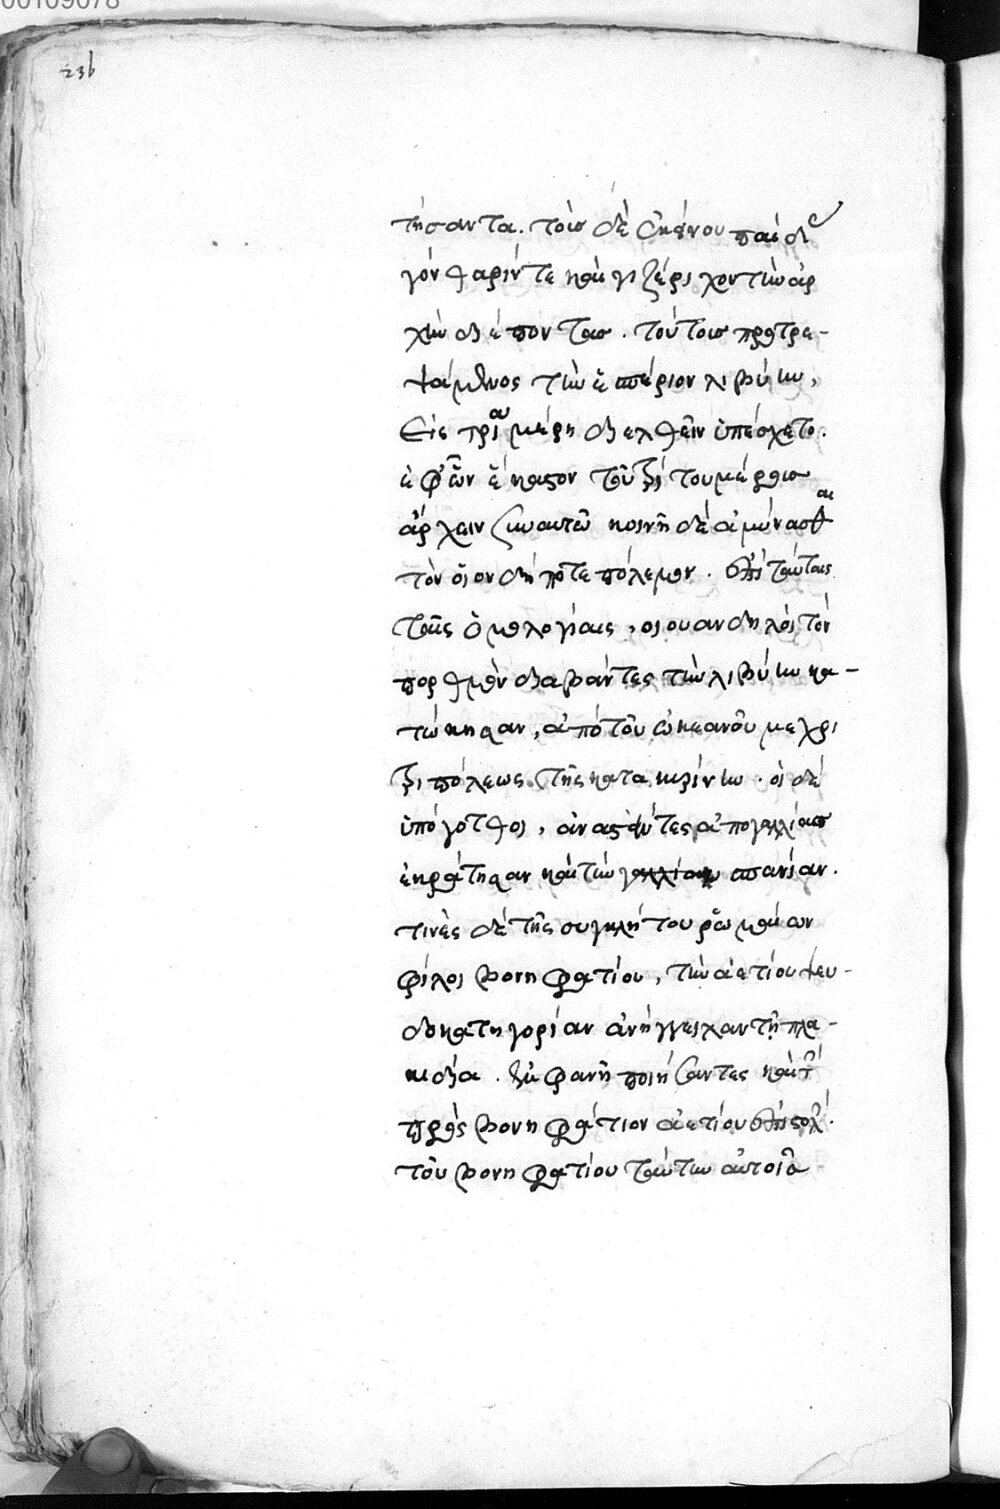 00109078
236
τήσαντα. τοῖσ δὲ ἐκείνου παισὶ
γόνθαρίν τε καὶ γιζέριχον τὴν ἀρ
χὴν διέποντασ. τούτοισ προτρε-
ψάμενος τὴν ἑσπέριον λιβύην,
εἰς τρία μέρη διελθεῖν ὑπέσχετο.
ἐφ' ὧν ἕκαστον τοῦ τρίτου μέρουσ
ἄρχειν σὺν αὐτῶ κοινῆ δὲ ἀμύνασθαι
τὸν οἷον δήποτε πόλεμον. ἐπὶ ταύταις
ταῖς ὁμολογίαις, οἱ ουανδηλοι τὸν
πορθμὸν διαβάντες τὴν λιβύην κα-
τώκησαν, ἀπὸ τοῦ ὠκεανοῦ μεχρι
τρι πόλεως τῆς κατα κυρίνην. οἱ δέ
ὑπόγοτθοι, ἀναστάντες ἀπὸ γαλλίασ
ἐκράτησαν καὶ τὴν γαλλίαν σπανίαν.
τινὲς δὲ τῆς συγκλήτου ῥωμαίων
φίλοι βονηφατίου, τὴν ἀετίου ψευ-
δοκατηγορίαν ἀνήγγειλαν τῆ πλα-
κιδία. ἐκφανῆ ποιήσαντες καὶ τὴν
πρὸς βονηφάτιον ἀετίου ἐπιστολήν.
τοῦ βονηφατίου ταύτην αὐτοῖσ